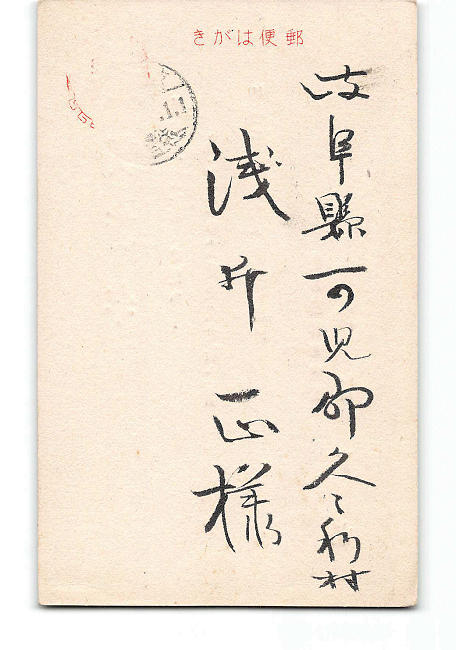 きがは便郵
岐阜縣可児郡久々利村
浅井正様